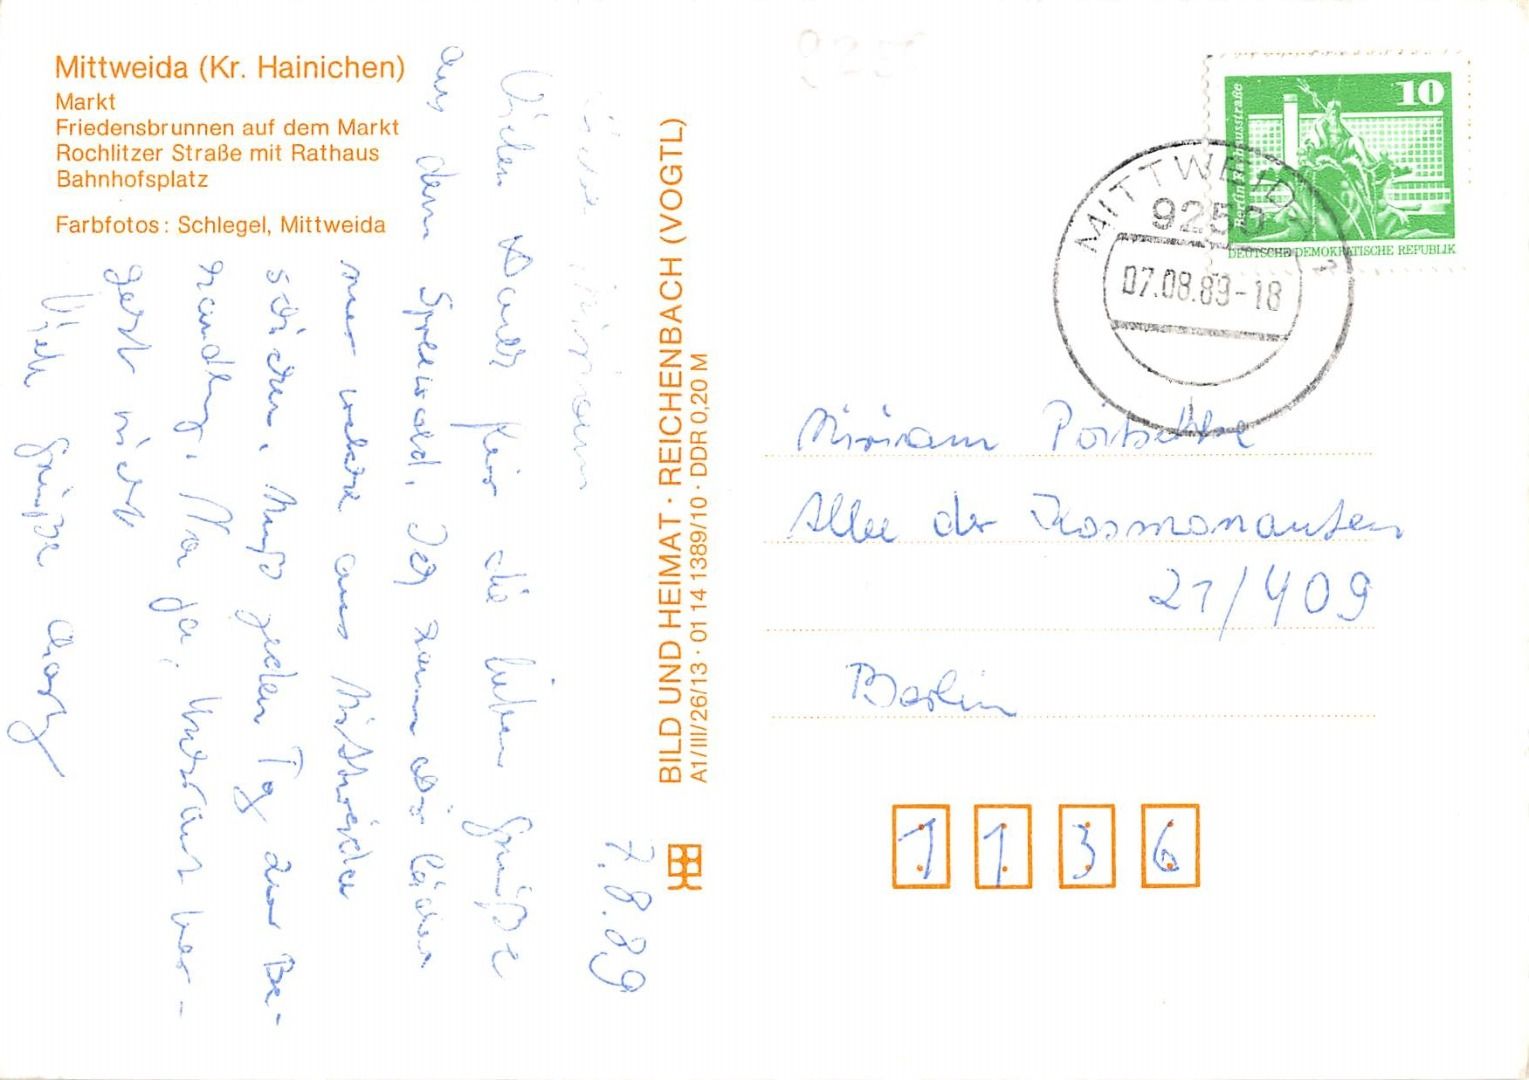 Mittweida (Kr. Hainichen)
Markt
Friedensbrunnen auf dem Markt
Rochlitzer Straße mit Rathaus
Bahnhofsplatz
Farbfotos: Schlegel, Mittweida
7.8.89
Liebe Miriam
Vielen Dank für die lieben Grüße
aus dem Spreewald. Ich kann dir leider
nur welche aus Mittweida
schicken. Muß jeden Tag zur Be-
handlg. Na ja, Unkraut ver-
geht nicht
Viele Grüße
BILD UND HEIMAT · REICHENBACH (VOGTL)
A1/III/26/13 · 01 14 1389/10 · DDR 0,20 M
9250
10
Berlin Rathausstraße
DEUTSCHE DEMOKRATISCHE REPUBLIK
MITTWEIDA 1
9250
07.08.89-18
Miriam
Allee der Kosmonauten
21/409
Berlin
1136